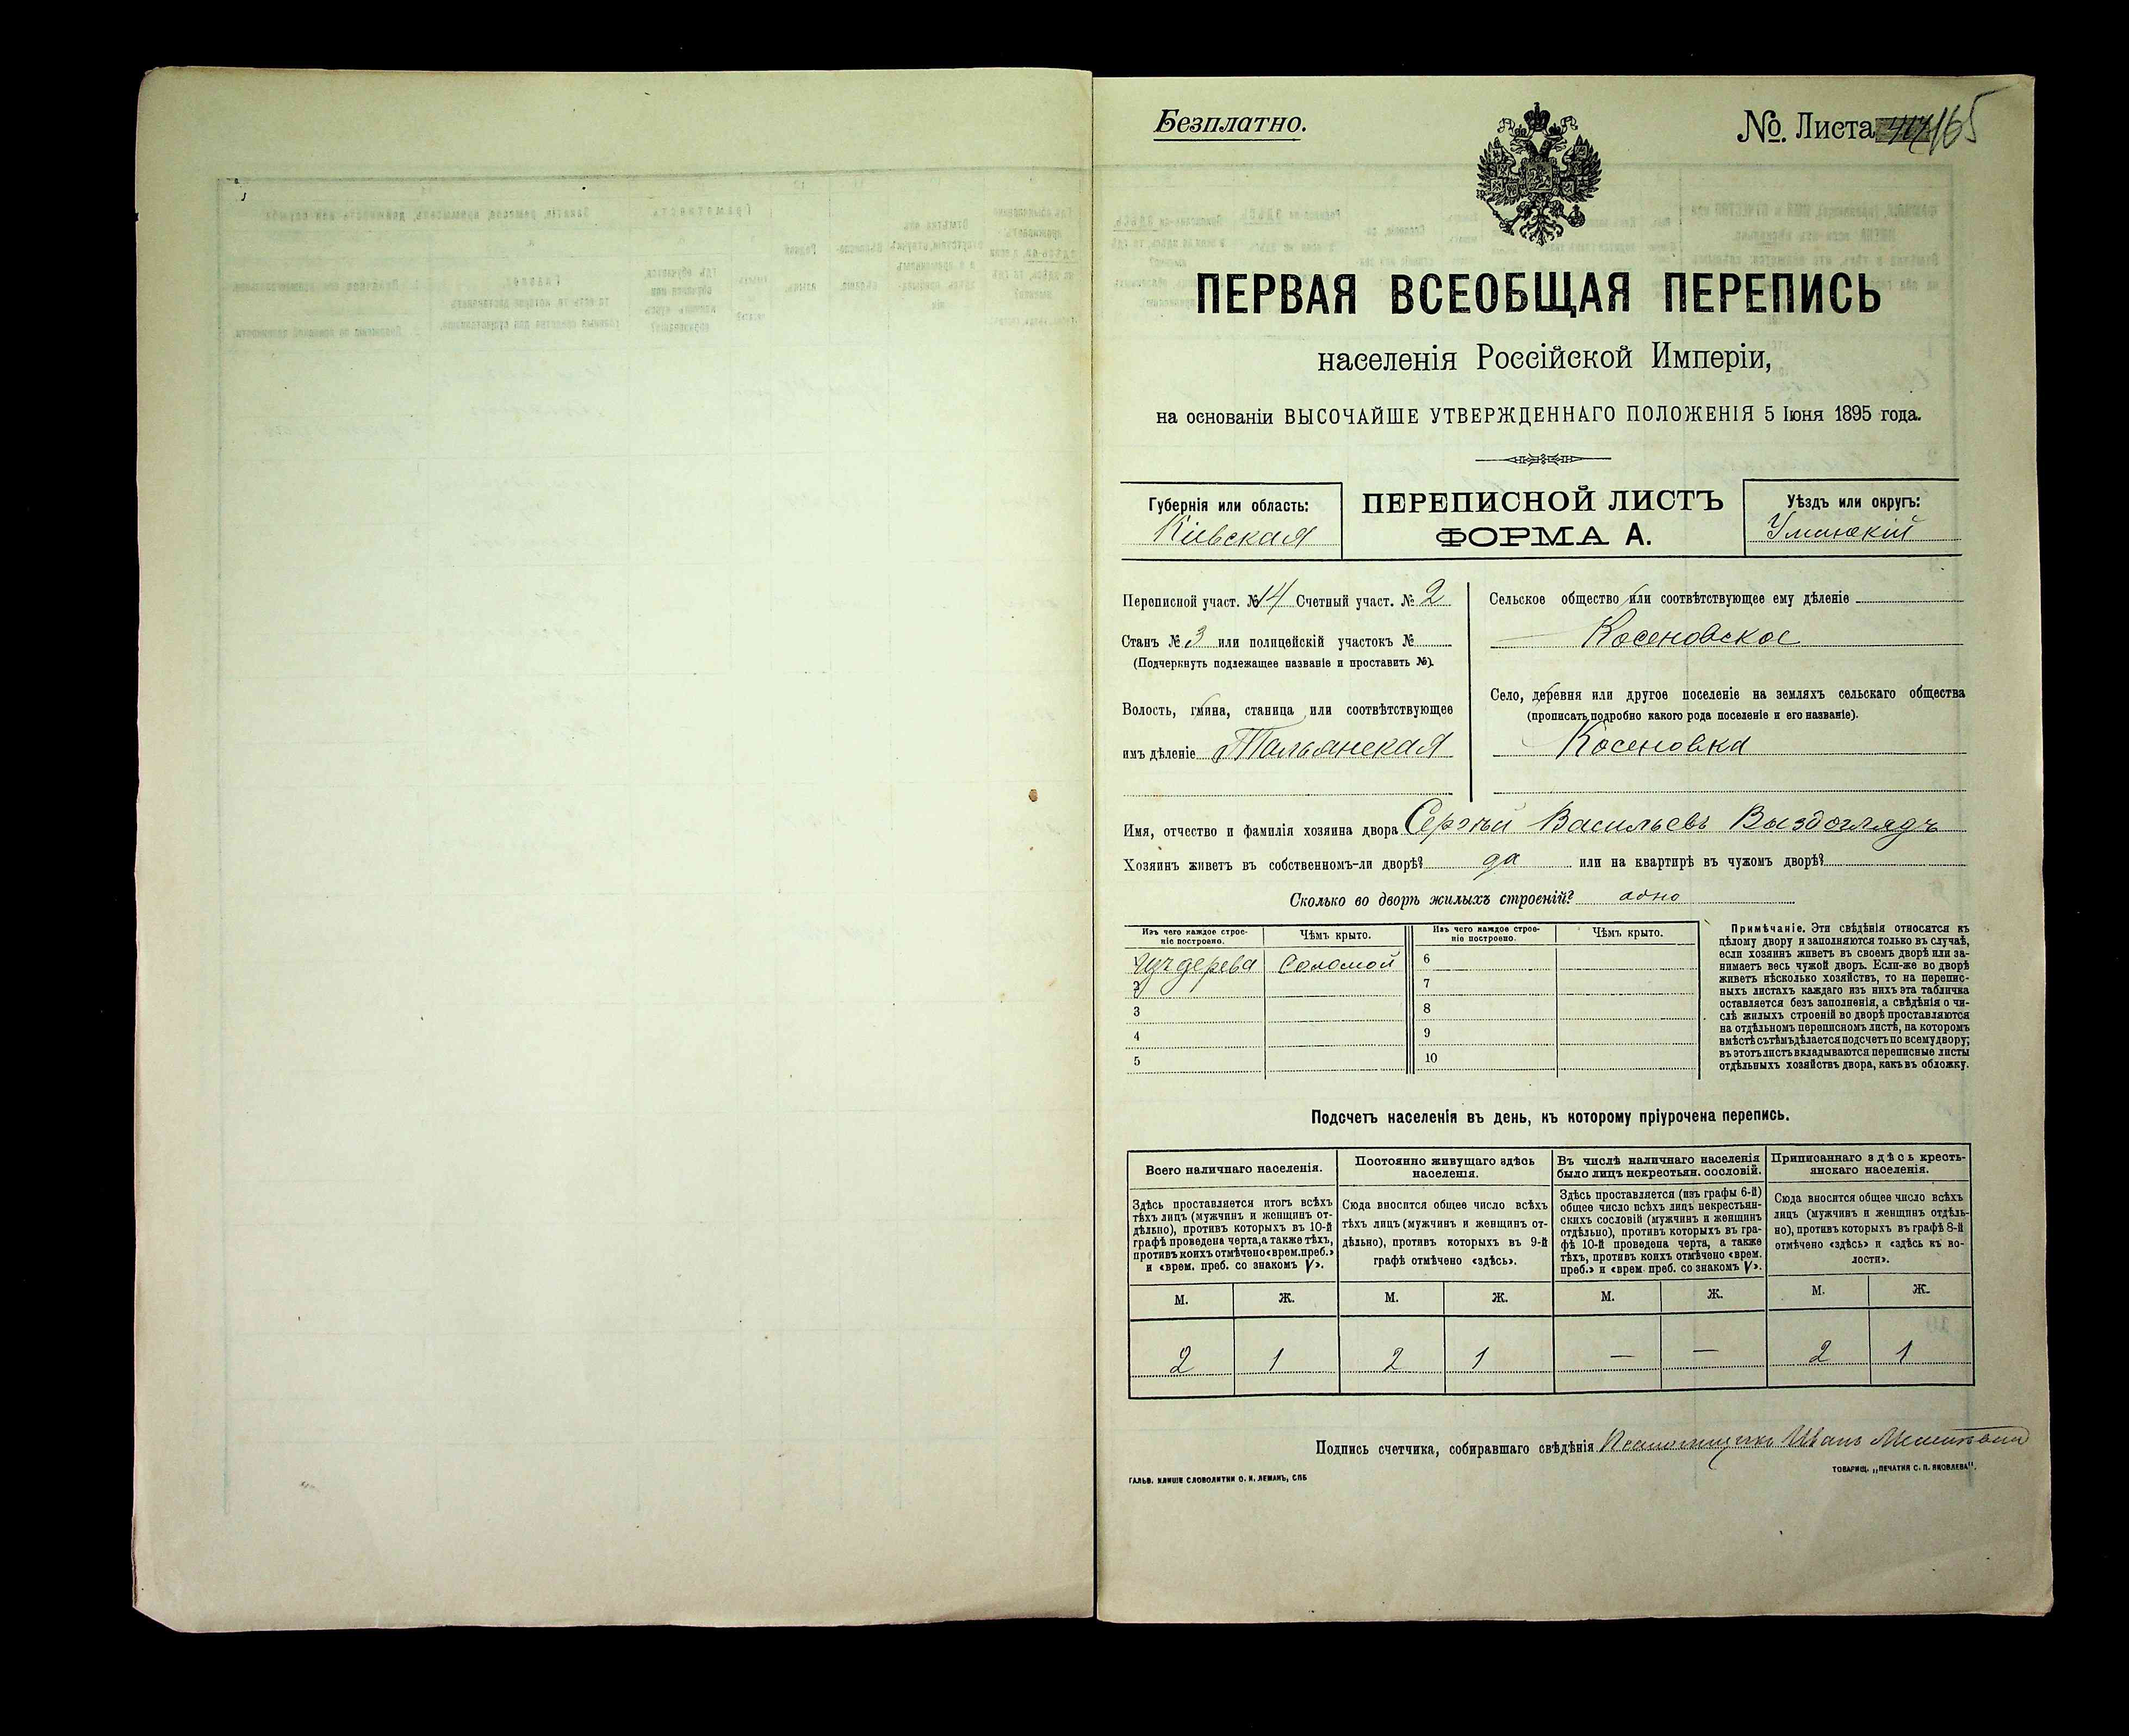 Безплатно.
№. Листа 165
ПЕРВАЯ ВСЕОБЩАЯ ПЕРЕПИСЬ
населенія Россійской Имперіи,
на основаніи ВЫСОЧАЙШЕ УТВЕРЖДЕННАГО ПОЛОЖЕНІЯ 5 Іюня 1895 года.
Губернія или область:
Кіевская
ПЕРЕПИСНОЙ ЛИСТЪ
ФОРМА А.
Уѣздъ или округъ:
Уманскій
Переписной участ. № 14 Счетный участ. № 2
Станъ № 3 или полицейскій участокъ №
(Подчеркнуть подлежащее названіе и проставить №).
Волость, гмина, станица или соотвѣтствующее
имъ дѣленіе Тальянская
Сельское общество или соотвѣтствующее ему дѣленіе
Косеновское
Село, деревня или другое поселеніе на земляхъ сельскаго общества
(прописать подробно какого рода поселеніе и его названіе).
Косеновка
Имя, отчество и фамилія хозяина двора Сергѣй Васильевъ
Хозяинъ живетъ въ собственномъ-ли дворѣ? да или на квартирѣ въ чужомъ дворѣ?
Сколько во дворѣ жилыхъ строеній? одно
Изъ чего каждое строе-
ніе построено.
Чѣмъ крыто.
Изъ чего каждое строе-
ніе построено.
Чѣмъ крыто.
изъ дерева Соломой 6
2 7
3 8
4 9
5 10
Примѣчаніе. Эти свѣдѣнія относятся къ
цѣлому двору и заполняются только въ случаѣ,
если хозяинъ живетъ въ своемъ дворѣ или за-
нимаетъ весь чужой дворъ. Если-же во дворѣ
живетъ нѣсколько хозяйствъ, то на перепис-
ныхъ листахъ каждаго изъ нихъ эта табличка
оставляется безъ заполненія, а свѣдѣнія о чи-
слѣ жилыхъ строеній во дворѣ проставляются
на отдѣльномъ переписномъ листѣ, на которомъ
вмѣстѣ съ тѣмъ дѣлается подсчетъ по всему двору;
въ этотъ листъ вкладываются переписные листы
отдѣльныхъ хозяйствъ двора, какъ въ обложку.
Подсчетъ населенія въ день, къ которому пріурочена перепись.
Всего наличнаго населенія.
Здѣсь проставляется итогъ всѣхъ
тѣхъ лицъ (мужчинъ и женщинъ от-
дѣльно), противъ которыхъ въ 10-й
графѣ проведена черта, а также тѣхъ,
противъ коихъ отмѣчено «врем. преб.»
и «врем. преб. со знакомъ V».
Постоянно живущаго здѣсь
населенія.
Сюда вносится общее число всѣхъ
тѣхъ лицъ (мужчинъ и женщинъ от-
дѣльно), противъ которыхъ въ 9-й
графѣ отмѣчено «здѣсь».
Въ числѣ наличнаго населенія
было лицъ некрестьян. сословій.
Здѣсь проставляется (изъ графы 6-й)
общее число всѣхъ лицъ некрестьян-
скихъ сословій (мужчинъ и женщинъ
отдѣльно), противъ которыхъ въ гра-
фѣ 10-й проведена черта, а также
тѣхъ, противъ коихъ отмѣчено «врем.
преб.» и «врем. преб. со знакомъ V».
Приписаннаго здѣсь кресть-
янскаго населенія.
Сюда вносится общее число всѣхъ
лицъ (мужчинъ и женщинъ отдѣль-
но), противъ которыхъ въ графѣ 8-й
отмѣчено «здѣсь» и «здѣсь къ во-
лости».
М. Ж. М. Ж. М. Ж. М. Ж.
2 1 2 1 — — 2 1
Подпись счетчика, собиравшаго свѣдѣнія Иванъ
ГАЛЬВ. КЛИШЕ СЛОВОЛИТНИ О. И. ЛЕМАНЪ, СПБ
ТОВАРИЩ. „ПЕЧАТНЯ С. П. ЯКОВЛЕВА".